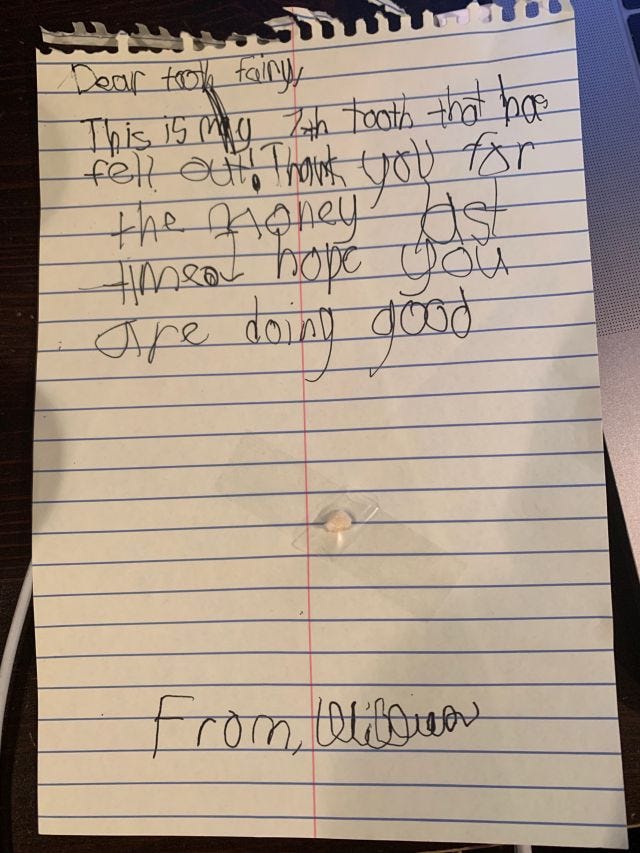 Dear tooth fairy,
This is my 7th tooth that has
fell out! Thank you for
the money last
time I hope you
are doing good
From,